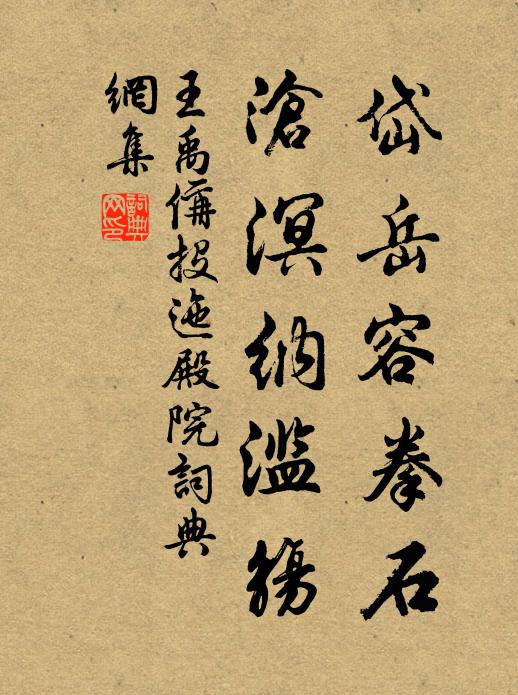 岱岳容拳石
滄溟納濫觴
王禹偁投迤殿院詞典
網集
詞典網印